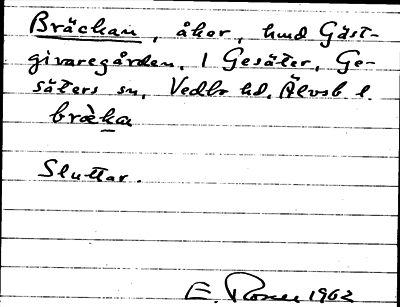 Bräckan, åker, hmd Gäst-
givaregården, 1 Gesäter, Ge-
säters sn, Vedbo hd, Älvsb l.
bràka
Sluttar.
E. 1962